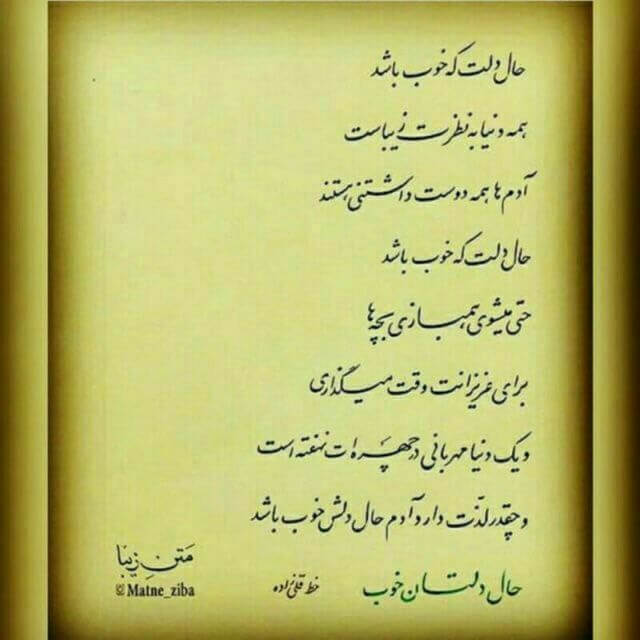 حال دلت که خوب باشد
همه دنیا به نظرت زیباست
آدم ها همه دوست داشتنی هستند
حال دلت که خوب باشد
حتی میشوی همبازی بچه ها
برای عزیزانت وقت میگذاری
و یک دنیا مهربانی در چهره ات نهفته است
و چقدر لذّت دارد آدم حال دلش خوب باشد
حال دلتان خوب
خط قلی زاده
متنِ زیبا
Matne_ziba